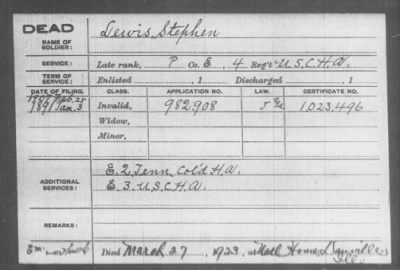 DEAD
NAME OF SOLDIER: Lewis Stephen
SERVICE: Late rank, P Co. E, 4 Reg't U.S.C.H.A.
TERM OF SERVICE: Enlisted , 1 Discharged , 1
DATE OF FILING. CLASS. APPLICATION NO. LAW. CERTIFICATE NO.
Feb. 25
1891 Jan. 3 Invalid, 982,908 1,023,496
Widow,
Minor,
ADDITIONAL SERVICES: E. 2 Tenn Col'd H.A.
E. 3. U.S.C.H.A.
REMARKS:
Died March 27, 1923, at Natl Home Danville
Ill.